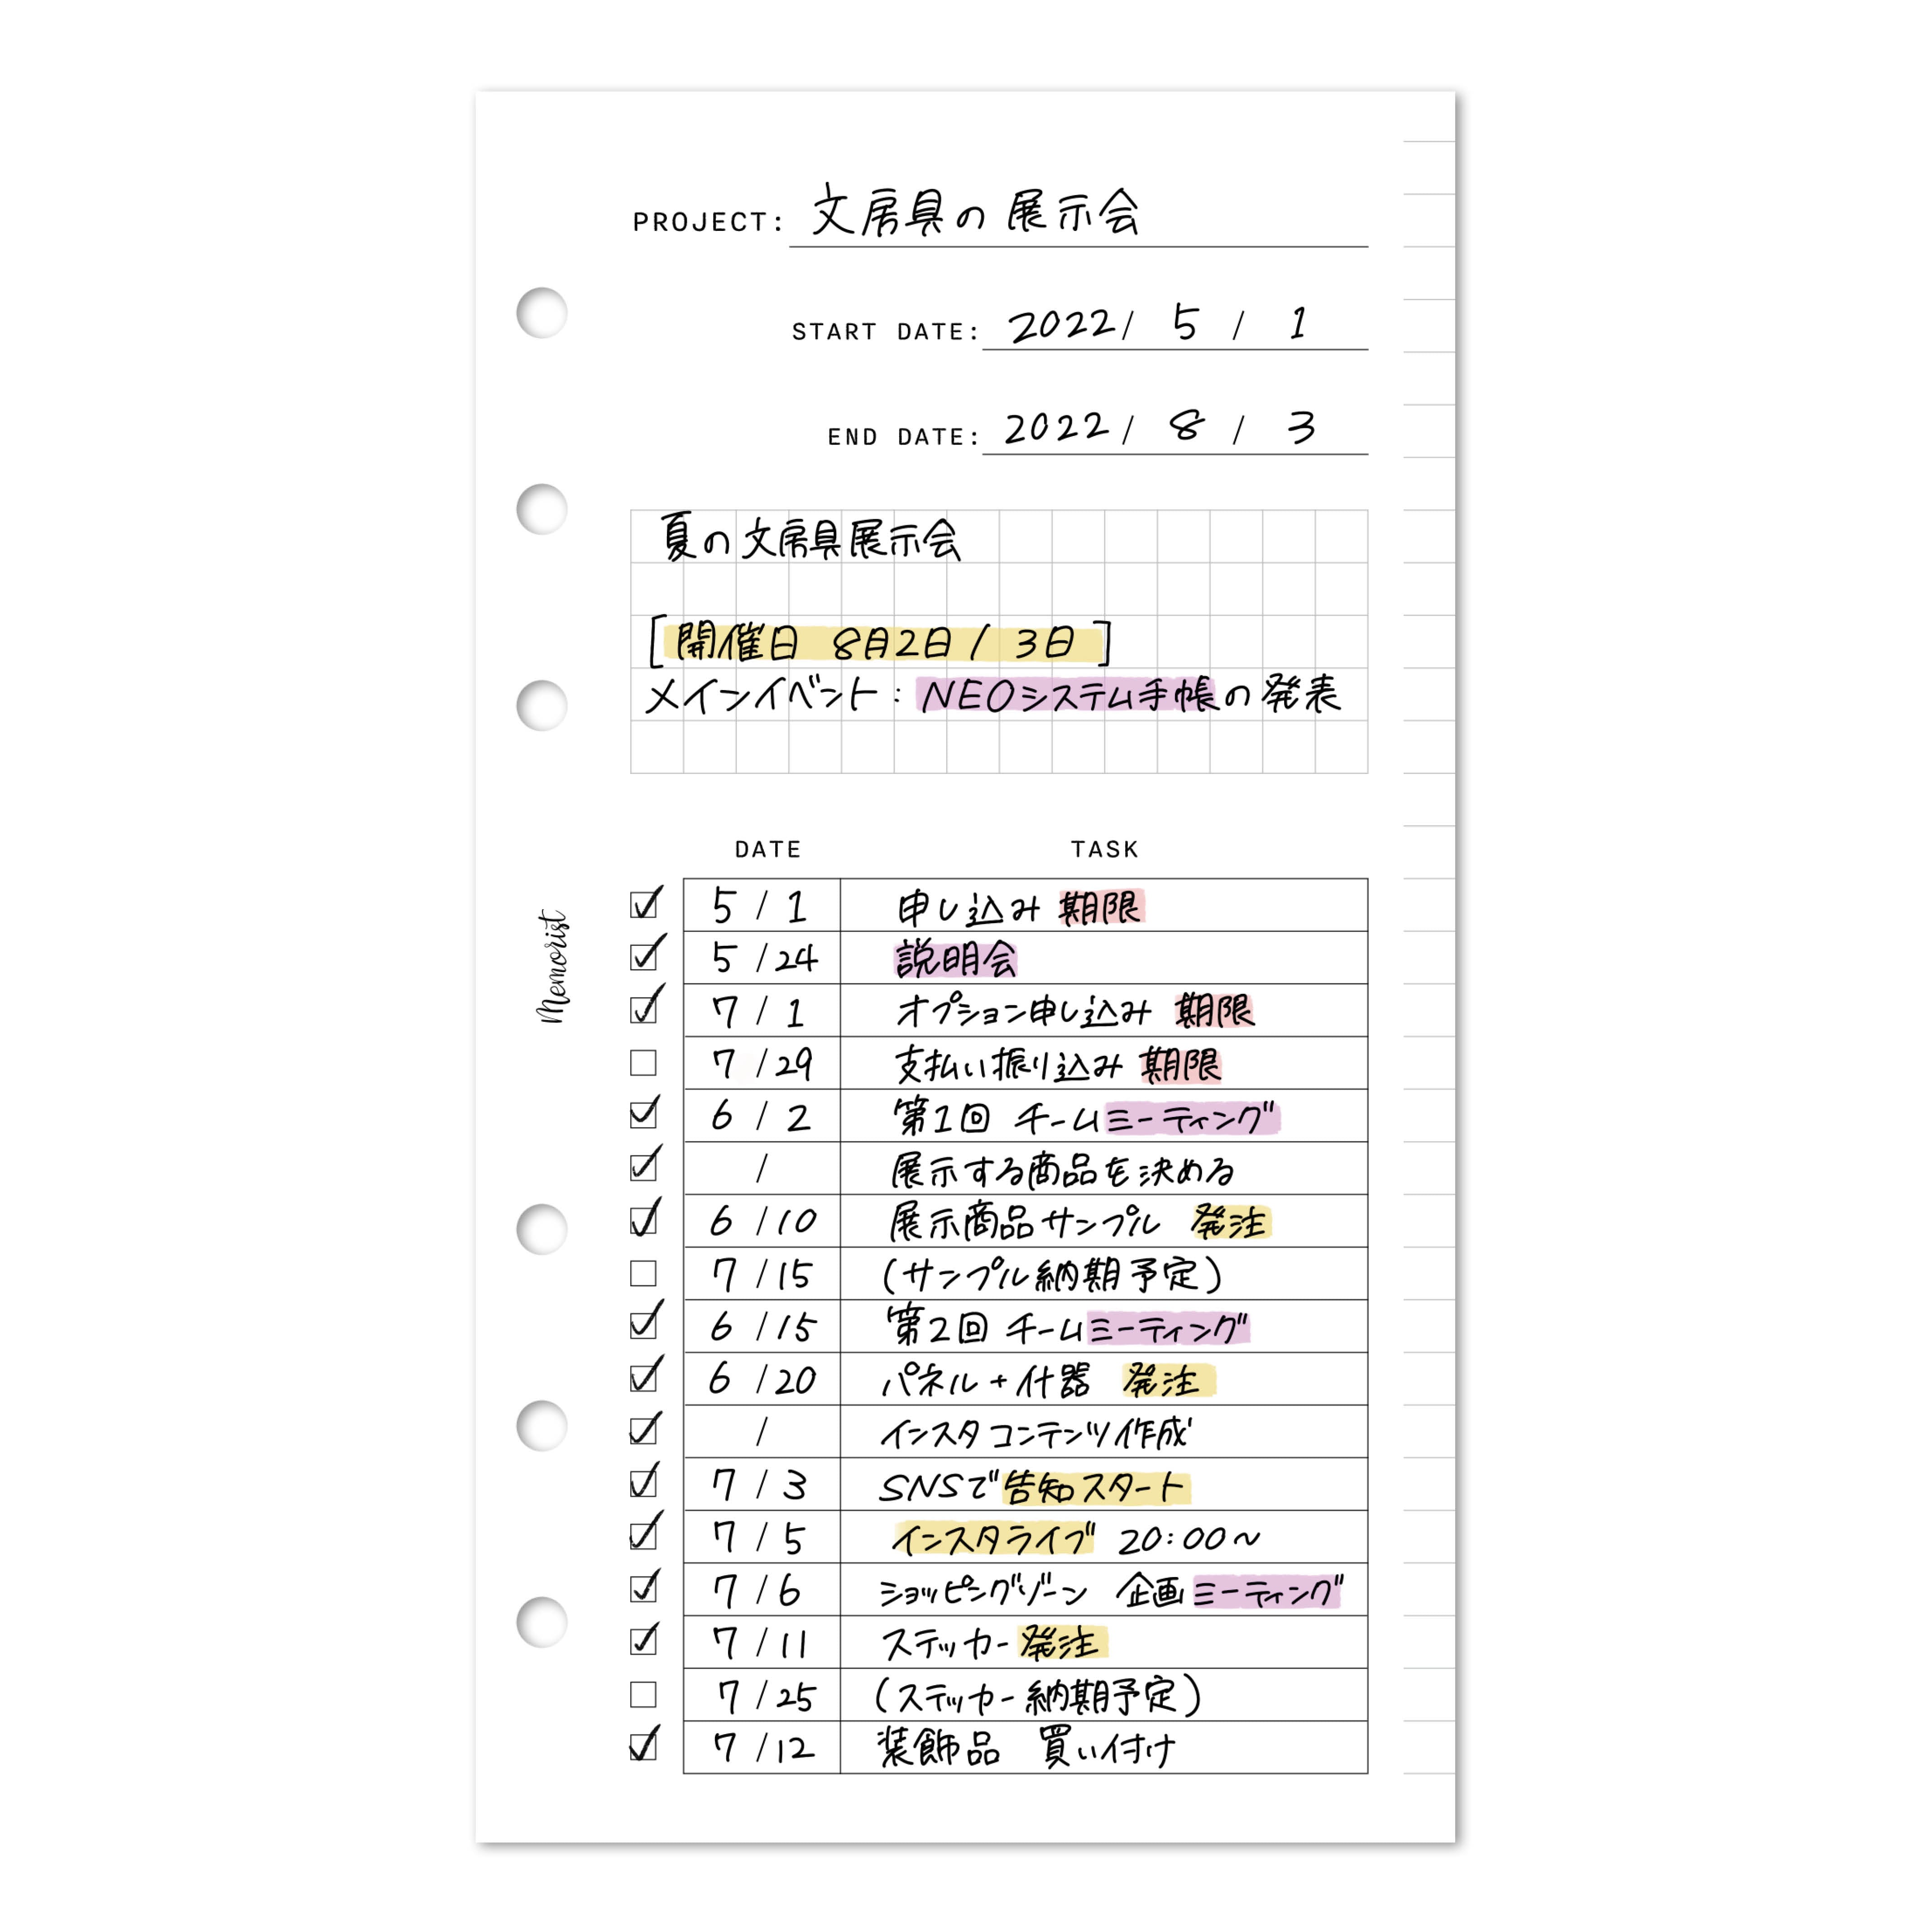 PROJECT: 文房具の展示会
START DATE: 2022/ 5 / 1
END DATE: 2022/ 8 / 3
夏の文房具展示会
[開催日 8月2日/3日]
メインイベント：NEOシステム手帳の発表
DATE TASK
5 / 1 申し込み 期限
5 /24 説明会
7 / 1 オプション申し込み 期限
7 /29 支払い振り込み 期限
6 / 2 第1回 チームミーティング
/ 展示する商品を決める
6 /10 展示商品サンプル 発注
7 /15 (サンプル納期予定)
6 /15 第2回 チームミーティング
6 /20 パネル+什器 発注
/ インスタコンテンツ作成
7 / 3 SNSで告知スタート
7 / 5 インスタライブ 20:00〜
7 / 6 ショッピングゾーン 企画ミーティング
7 /11 ステッカー発注
7 /25 (ステッカー納期予定)
7 /12 装飾品 買い付け
Memorist